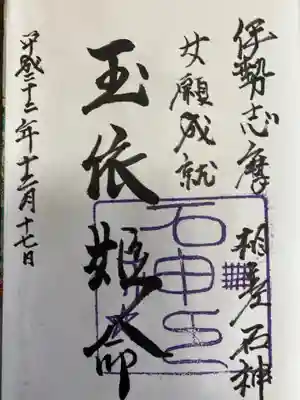 伊勢志摩 相差石神
女願成就
玉依姫命
平成二十二年十二月十七日
石神